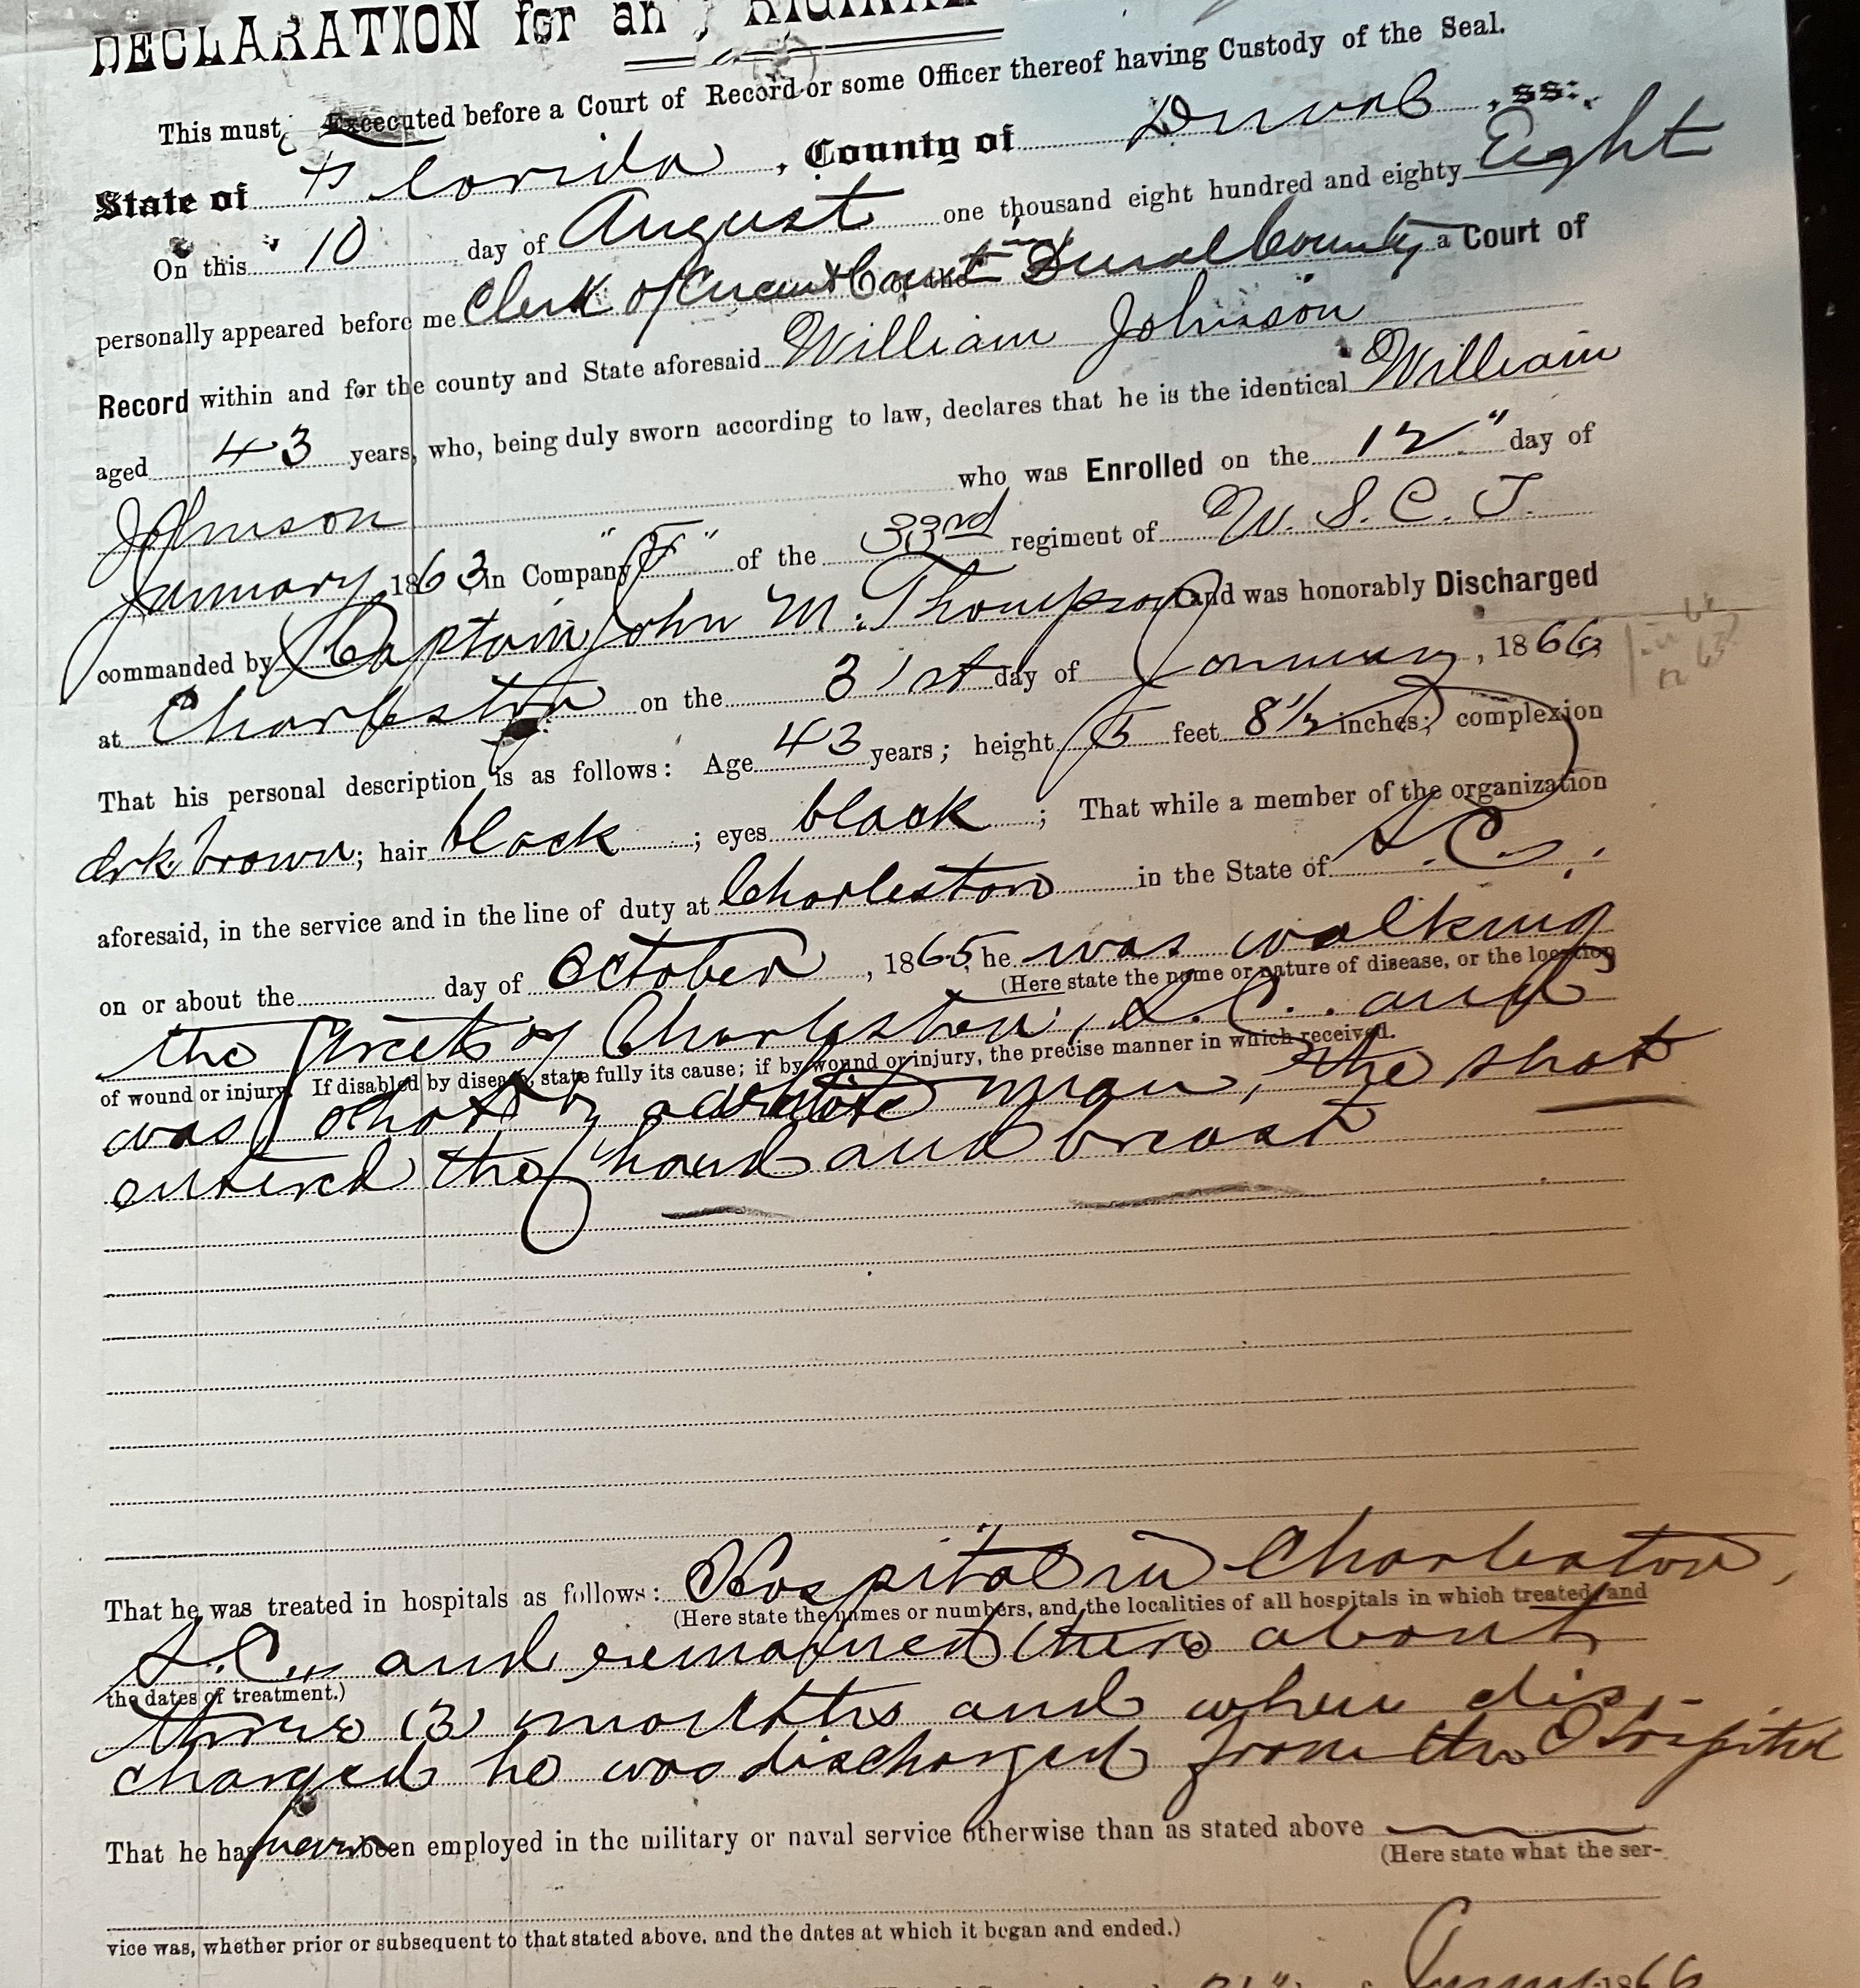 DECLARATION for an
This must Excecuted before a Court of Record or some Officer thereof having Custody of the Seal.
State of Florida, County of Duval, ss:
On this 10 day of August one thousand eight hundred and eighty Eight
personally appeared before me Clerk of Circuit Court of the Duval County a Court of
Record within and for the county and State aforesaid William Johnson
aged 43 years, who, being duly sworn according to law, declares that he is the identical William
Johnson who was Enrolled on the 12" day of
January 1863 in Company "F" of the 33rd regiment of U. S. C. T.
commanded by Captain John M. Thompson and was honorably Discharged
at Charleston on the 31st day of January, 1866
That his personal description is as follows: Age 43 years; height 5 feet 8½ inches; complexion
drk brown; hair black; eyes black; That while a member of the organization
aforesaid, in the service and in the line of duty at Charleston in the State of S.C.
on or about the day of October, 1865, he was walking
(Here state the name or nature of disease, or the location
the streets of Charleston, S.C. and
of wound or injury. If disabled by disease, state fully its cause; if by wound or injury, the precise manner in which received.
was shot by a white man, the shot
entered the hand and breast
That he was treated in hospitals as follows: Hospital in Charleston,
(Here state the names or numbers, and the localities of all hospitals in which treated, and
S.C., and remained there about
the dates of treatment.)
three (3) months and when dis-
charged he was discharged from the Hospital
That he has never been employed in the military or naval service otherwise than as stated above
(Here state what the ser-
vice was, whether prior or subsequent to that stated above, and the dates at which it began and ended.)